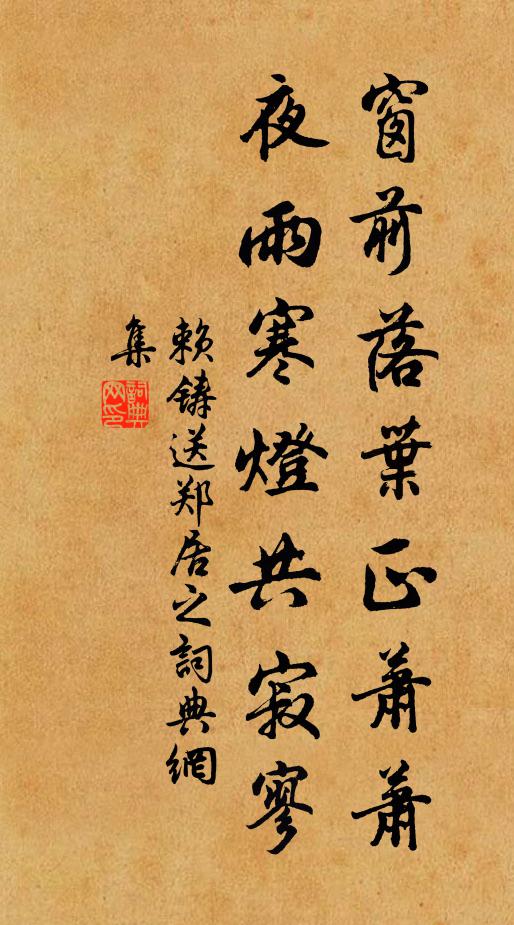 窗前落葉正蕭蕭
夜雨寒燈共寂寥
赖鑄送郑居之詞典網
集
詞典
网印